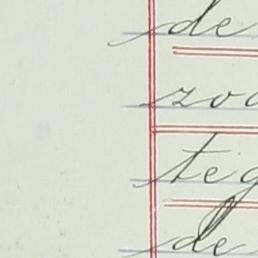 de
zoo
teg
de